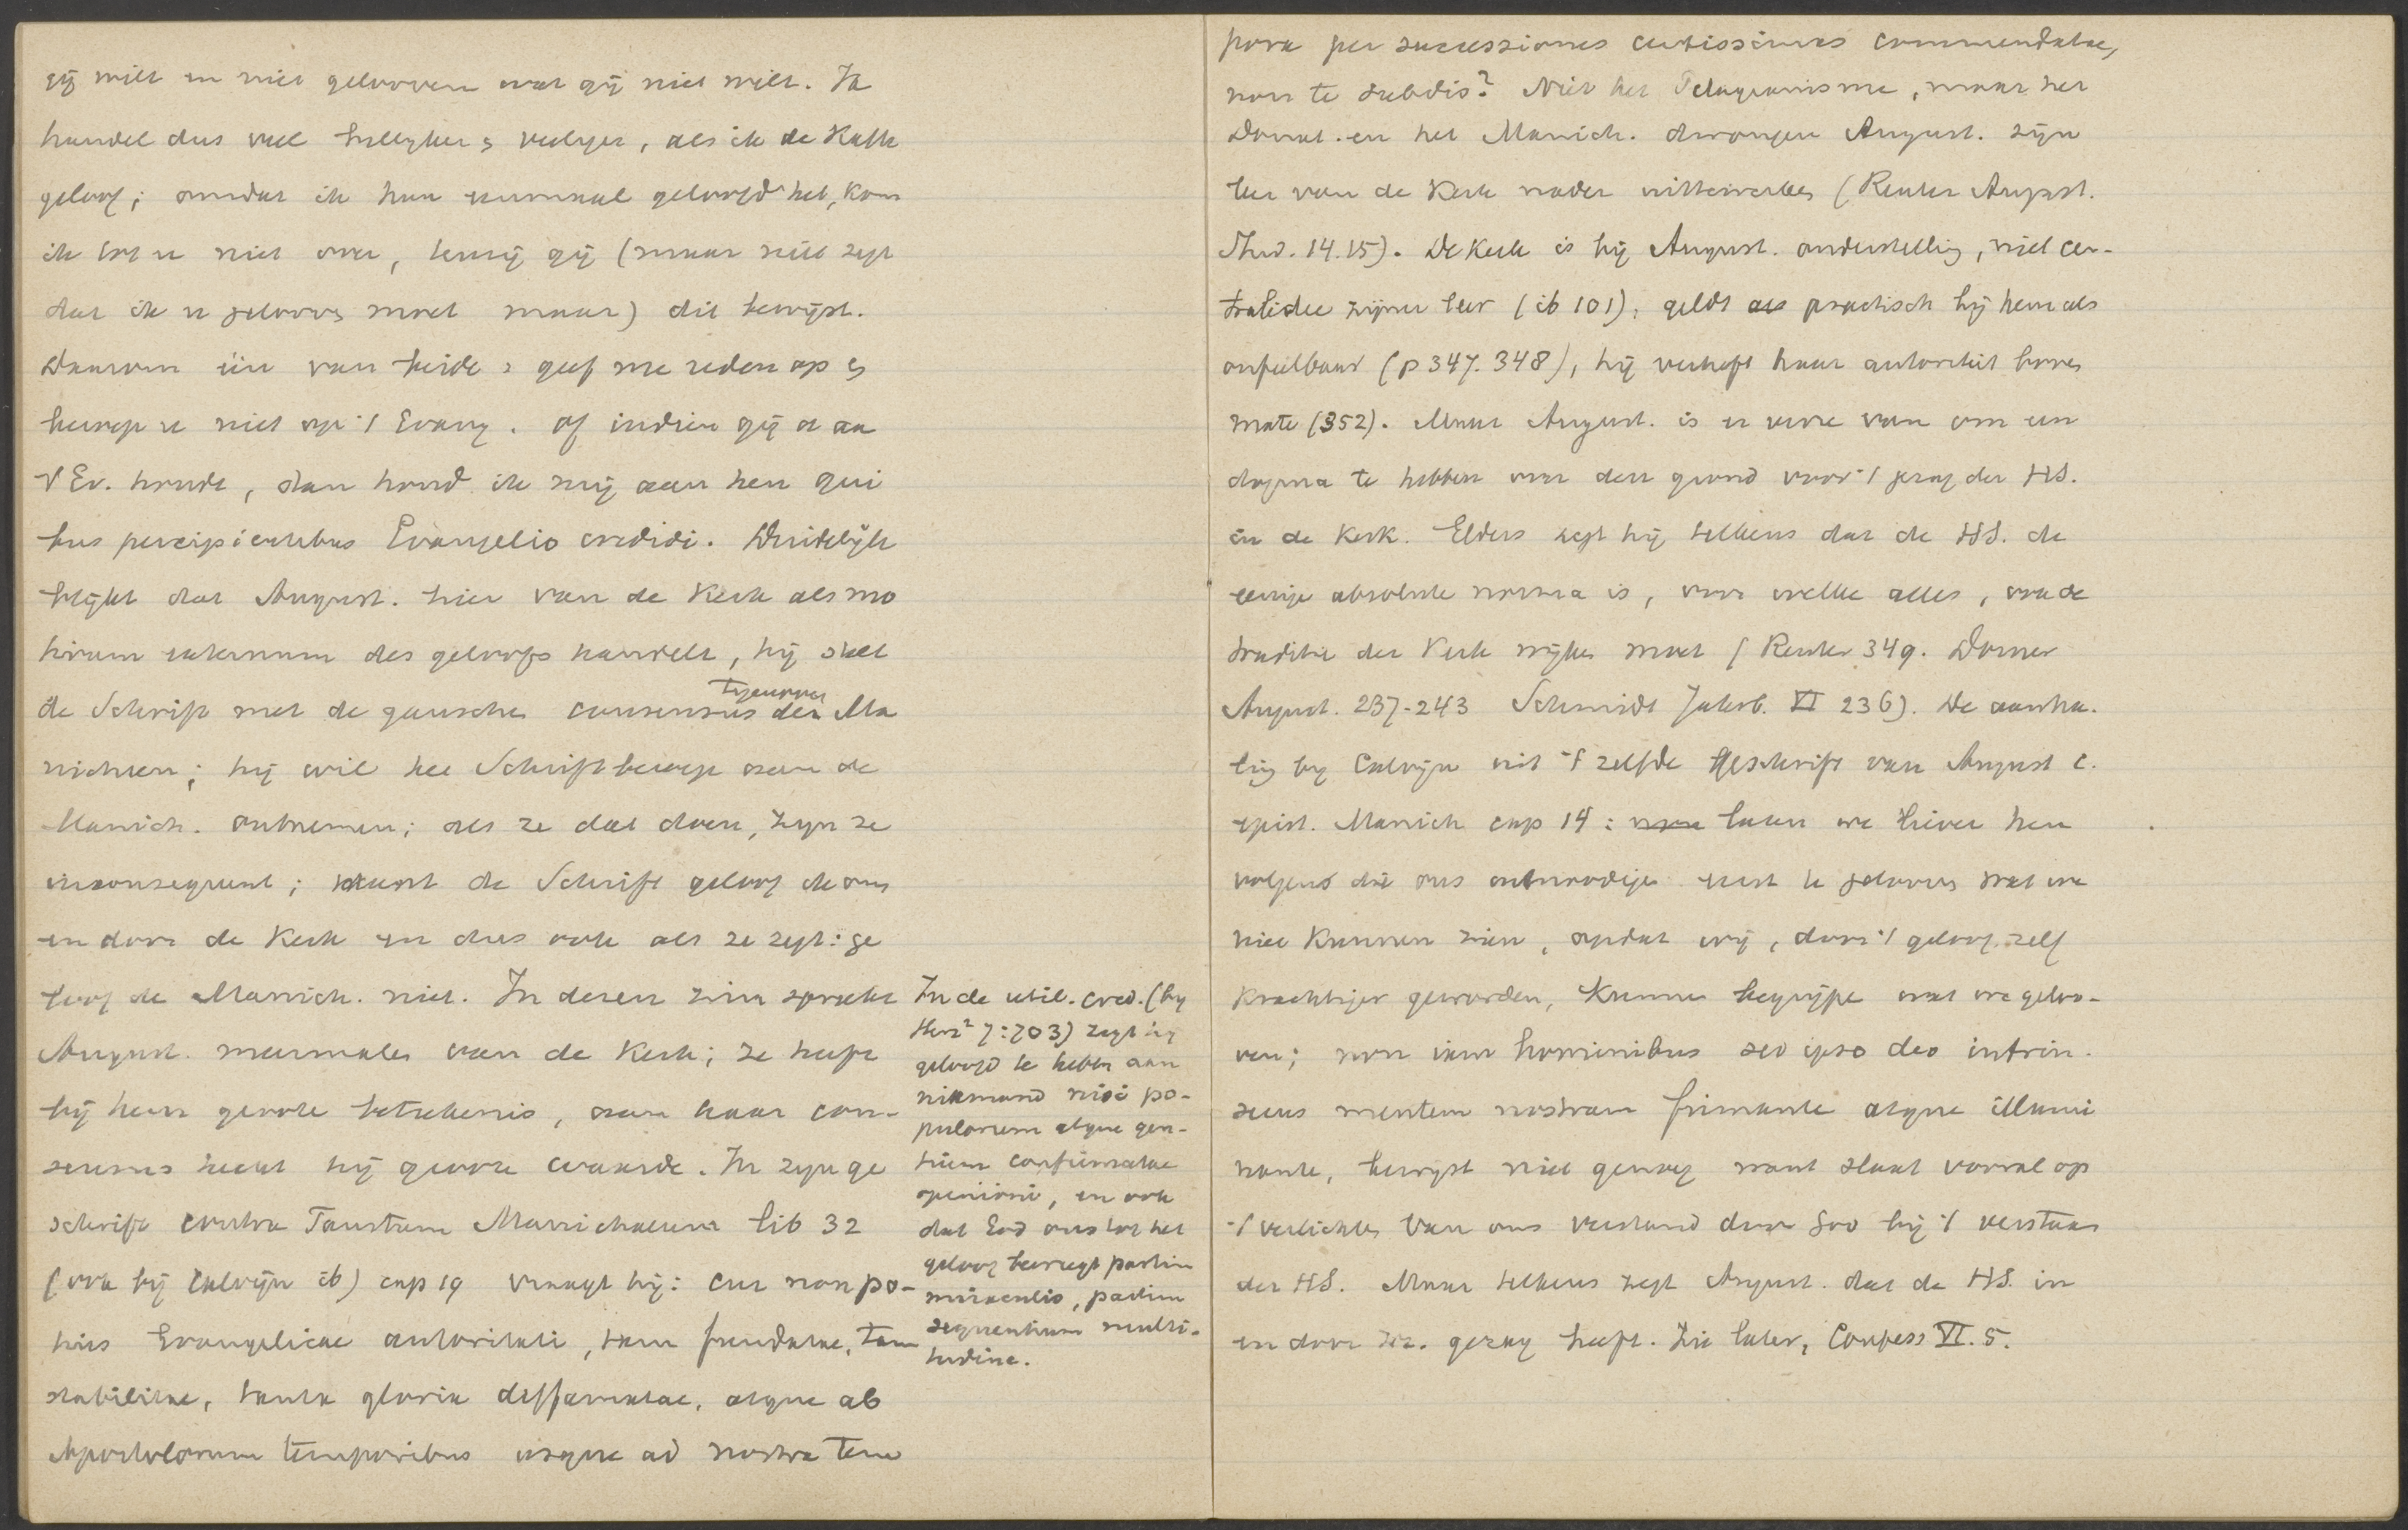 gij wilt en niet gelooven wat gij niet wilt. Ik
handel dus veel billijker & veiliger, als ik de Kath
geloof; omdat ik hun eenmaal geloofd heb, kom
ik tot u niet over, tenzij gij (maar niet zegt
dat ik u gelooven moet maar) dit bewijst.
Daarom één van beide: geef me reden op &
beroep u niet op 't Evang. Of indien gij u aan
't Ev. houdt, dan houd ik mij aan hen qui
bus precipientibus Evangelio credidi. Duidelijk
blijkt dat August. hier van de Kerk als mo
tivum externum des geloofs handelt, hij stelt
de Schrift met de ganschen consensus tegenover der Ma
nichaeen; hij wil het Schriftberoep aan de
Manich. ontnemen; als ze dat doen, zijn ze
inconsequent; want de Schrift geloof ik om
en door de Kerk en dus ook als ze zegt: ge
loof de Manich. niet. In dezen zin spreekt
August. meermalen van de Kerk; ze heeft
bij hem groote beteekenis, aan haar con-
sensus hecht hij groote waarde. In zijn ge
schrift contra Faustum Manichaeum lib 32
(ook bij Calvijn ib) cap 19 vraagt hij: cur non po-
tius Evangelicae autoritati, tam fundatae, tam
stabilitae, tanta gloria diffamatae, atque ab
Apostolorum temporibus usque ad nostra tem
In de util. cred. (by
Herz² 7:703) zegt hij
geloofd te hebben aan
niemand nisi po-
pulorum atque gen-
tium confirmatae
opinioni, en ook
dat God ons tot het
geloof beweegt partim
miraculis, partim
sequentium multi-
tudine.
pora per successiones certissimas commendatae,
non te subdis? Niet het Pelagianisme, maar het
Donat. en het Manich. drongen August. zijn
leer van de Kerk nader uittewerken (Reuter August.
Stud. 14.15). De Kerk is bij August. onderstelling, niet cen-
traalidee zijner leer (ib 101), geldt als practisch bij hem als
onfeilbaar (p 347. 348), hij verheft haar autoriteit boven
mate (352). Maar August. is er verre van om een
dogma te hebben over den grond voor 't gezag der HS.
in de Kerk. Elders zegt hij telkens dat de HS. de
eenige absolute norma is, voor welke alles, ook de
traditie der Kerk wijken moet (Reuter 349. Dorner
August. 237-243 Schmidt Jahrb. VI 236). De aanha-
ling by Calvijn uit 't zelfde geschrift van August c.
epist. Manich cap 14: laten we liever hen
volgen die ons uitnoodigen eerst te gelooven wat we
niet kunnen zien, opdat wij, door 't geloof zelf
krachtiger geworden, kunnen begrijpen wat we geloo-
ven; non iam hominibus sed ipso deo intrin-
secus mentem nostram firmante atque illumi
nante, bewijst niet genoeg want slaat vooral op
't verlichten van ons verstand door God bij 't verstaan
der HS. Maar telkens zegt August. dat de HS. in
en door zich. gezag heeft. Zie later, Confess VI. 5.